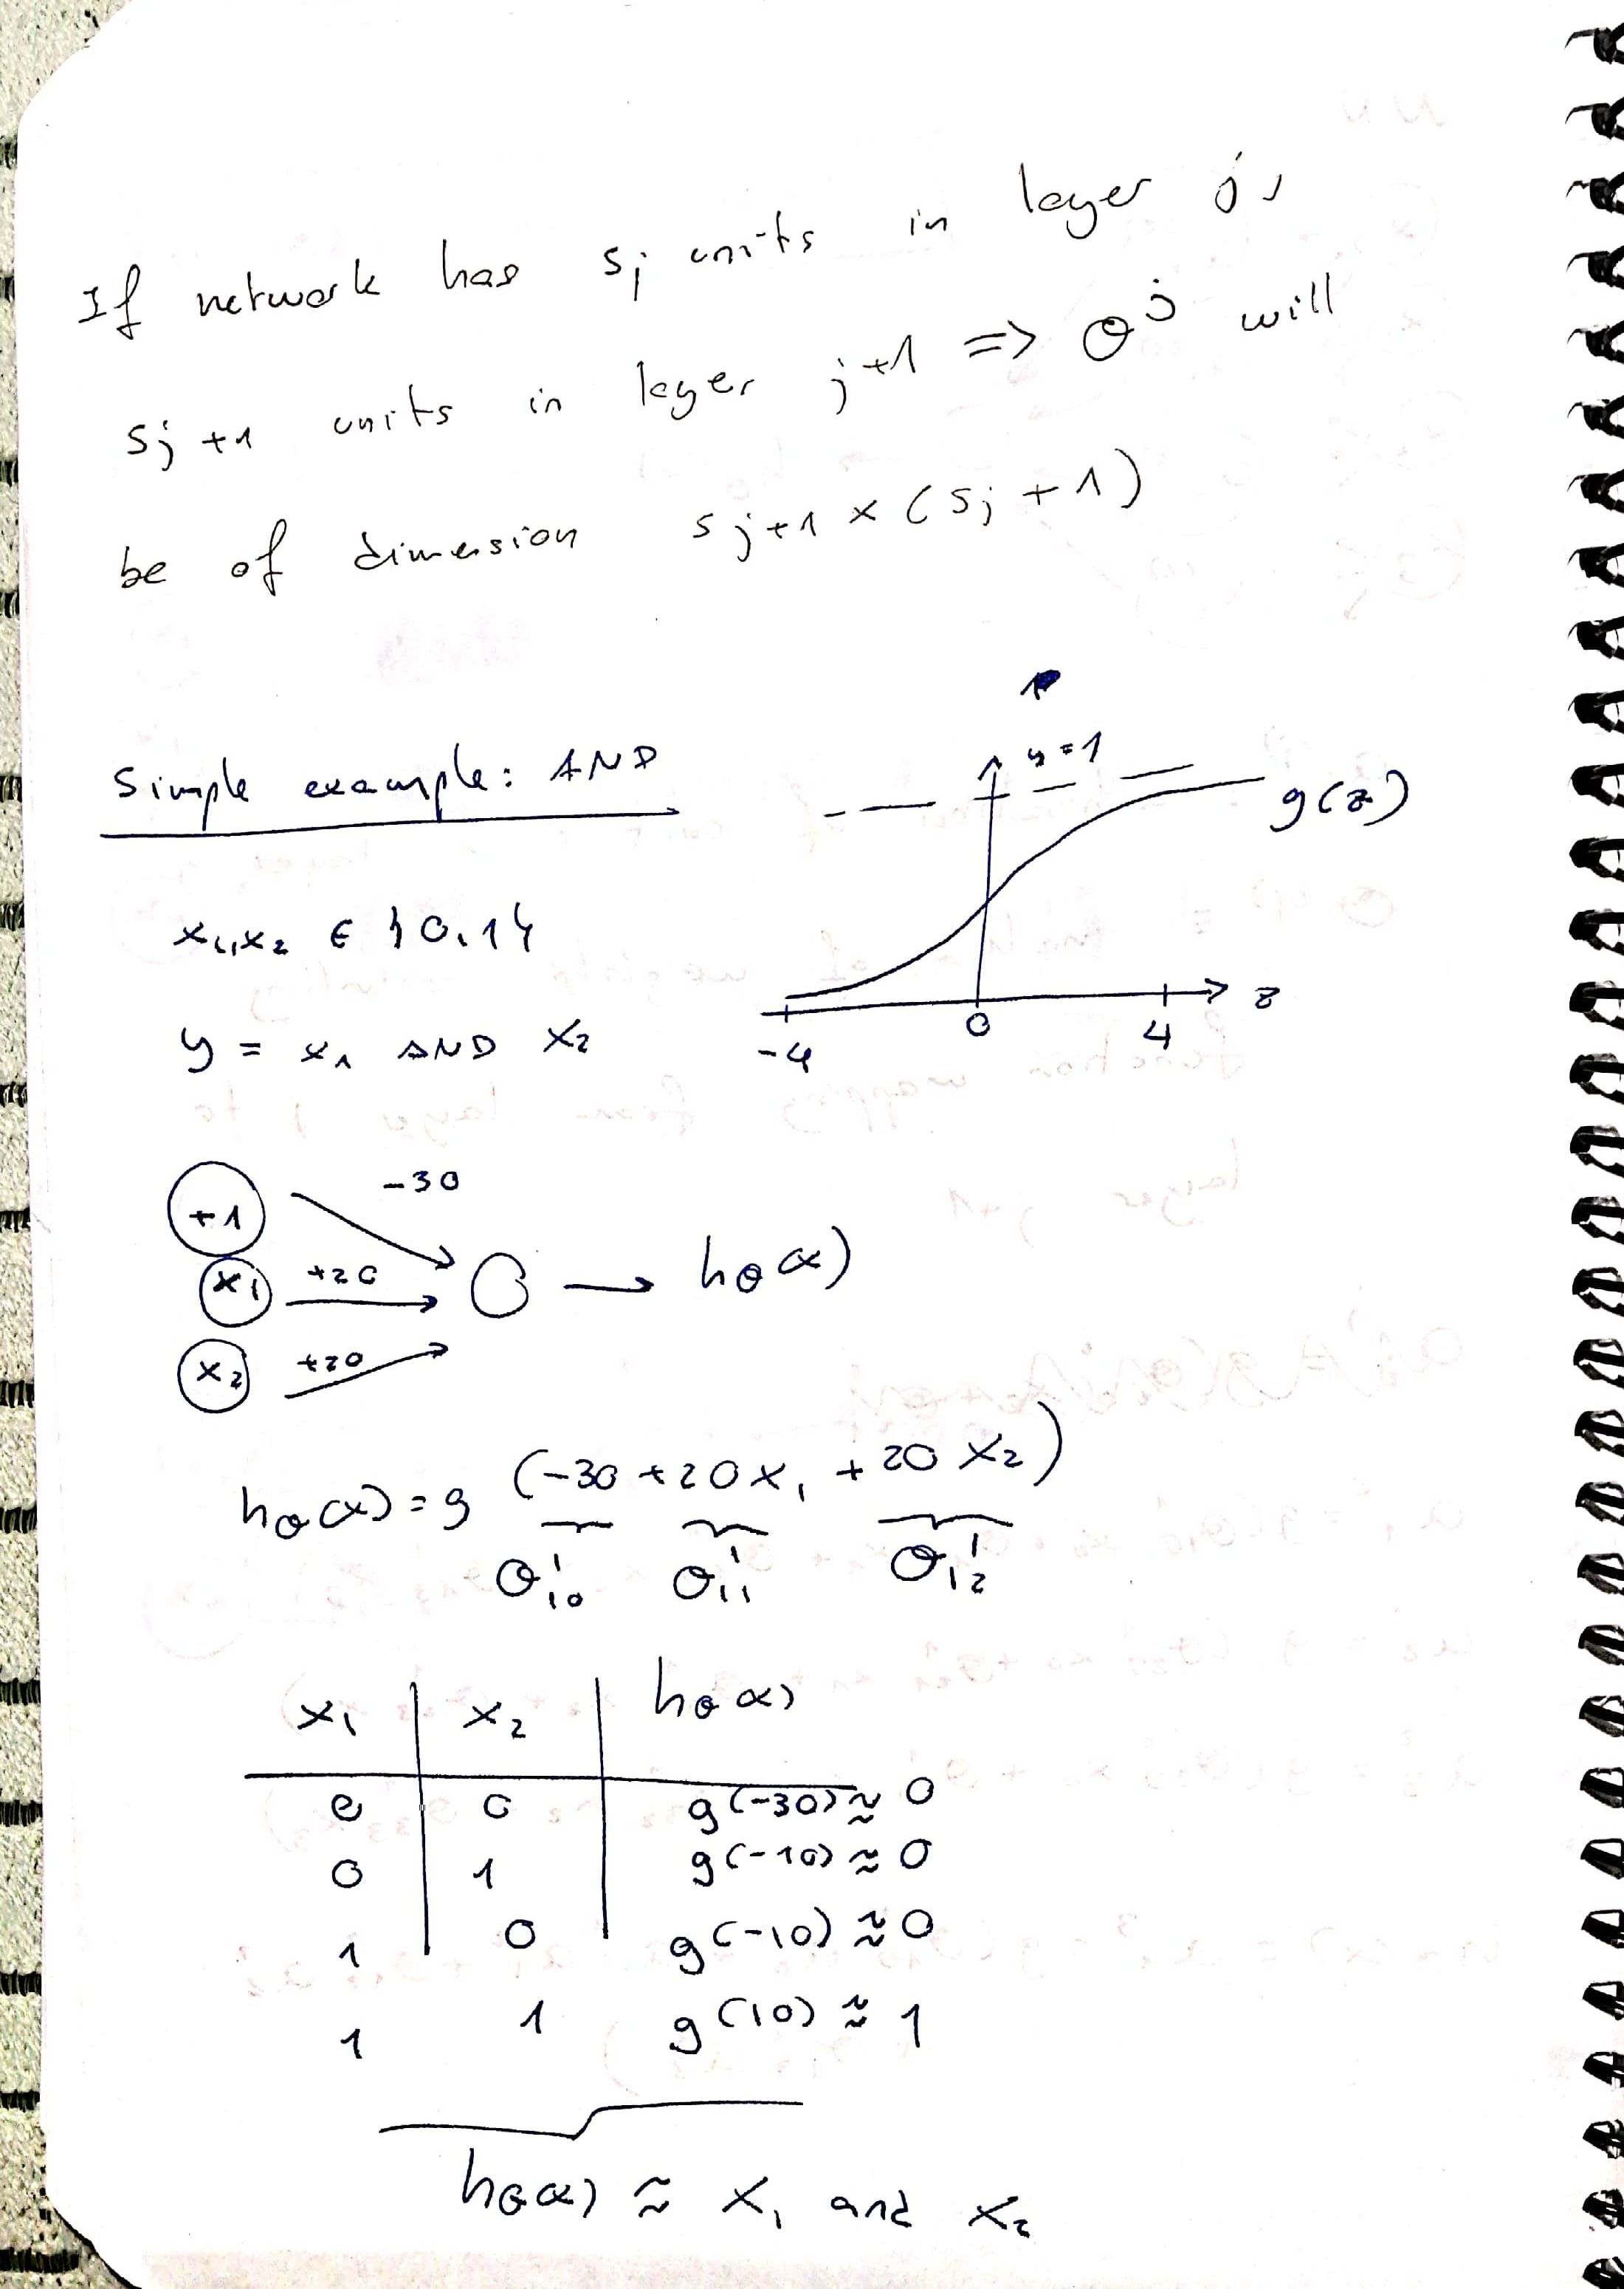 If network has sj units in layer j,
sj+1 units in layer j+1 => Θ^j will
be of dimension sj+1 x (sj + 1)
Simple example: AND
y=1
g(z)
x1,x2 ∈ {0,1}
-4 0 4 z
y = x1 AND x2
+1 -30
x1 +20 → hΘ(x)
x2 +20
hΘ(x) = g (-30 + 20x1 + 20x2)
Θ¹10 Θ¹11 Θ¹12
x1 x2 hΘ(x)
0 0 g(-30) ≈ 0
0 1 g(-10) ≈ 0
1 0 g(-10) ≈ 0
1 1 g(10) ≈ 1
hΘ(x) ≈ x1 and x2